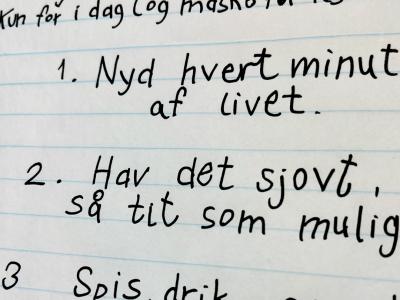 Kun for i dag (og måske for
1. Nyd hvert minut
af livet.
2. Hav det sjovt,
så tit som mulig
3 Spis, drik